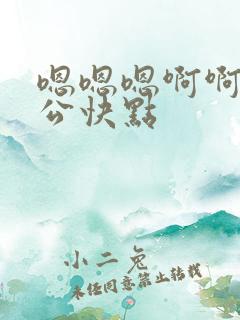 嗯嗯嗯啊啊
公快點
小二兔
未經同意禁止轉載